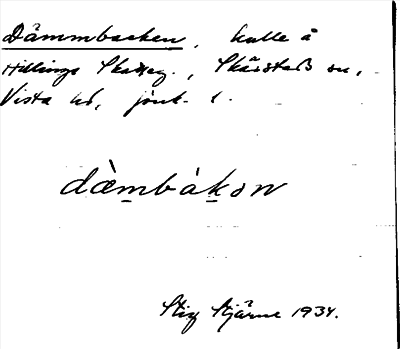 Dämmbacken, kulle å
Hillinge Skatteg., Skärstads sn,
Vista hd, Jönk. l.
dæ̀m̲bàk̲ɔn
Stig Stjärne 1934.